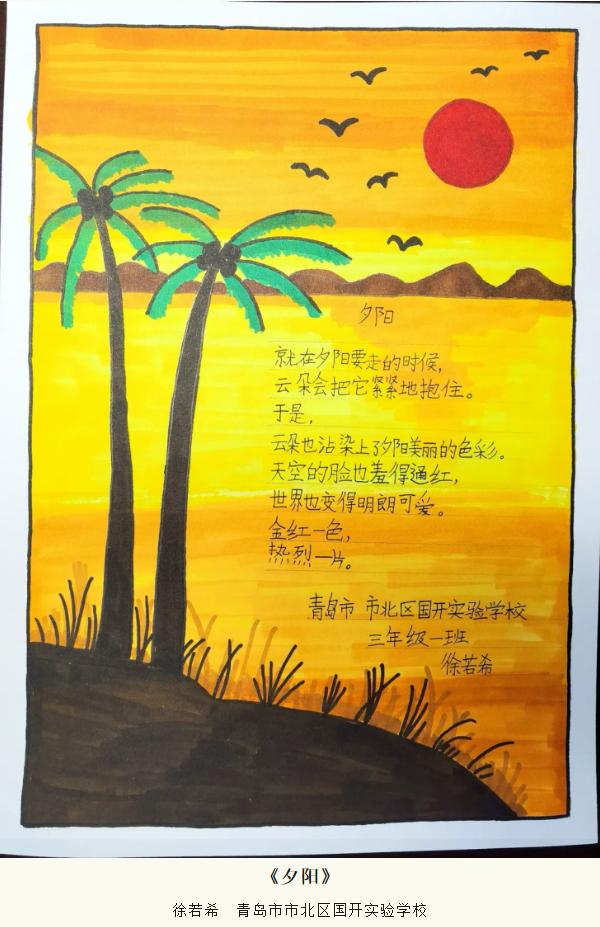 夕阳
就在夕阳要走的时候，
云朵会把它紧紧地抱住。
于是，
云朵也沾染上了夕阳美丽的色彩。
天空的脸也羞得通红，
世界也变得明朗可爱。
金红一色，
热烈一片。
青岛市 市北区国开实验学校
三年级一班
徐若希
《夕阳》
徐若希 青岛市市北区国开实验学校